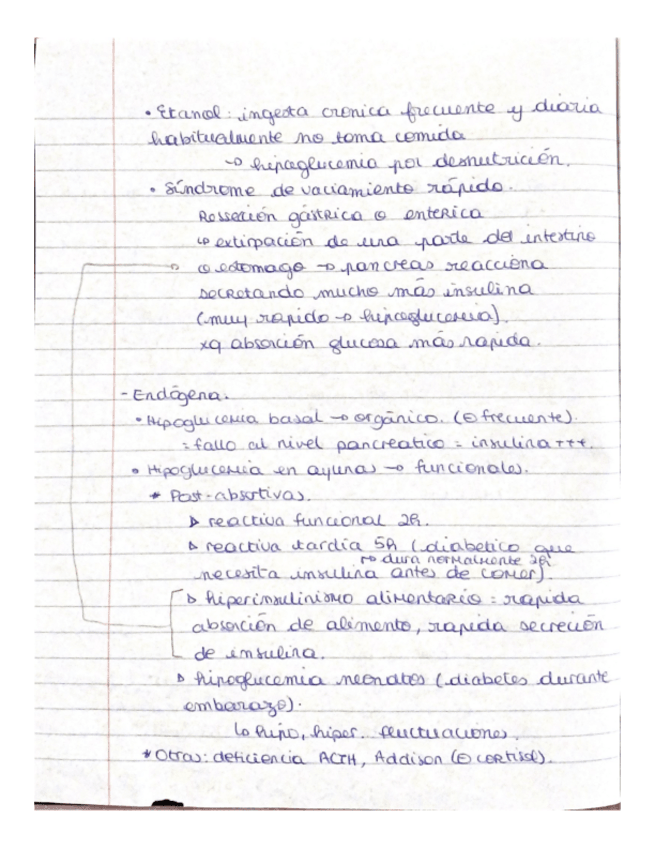 • Etanol: ingesta cronica frecuente y diaria
habitualmente no toma comida
↳ hipoglucemia por desnutrición.
• Síndrome de vaciamiento rápido.
Ressección gástrica o enterica
↳ extirpación de una parte del intestino
o estomago → pancreas reacciona
secretando mucho más insulina
(muy rapido → hipoglucemia).
xq absorción glucosa más rapida.
- Endógena.
• Hipoglucemia basal → orgánico. (⊖ frecuente).
= fallo al nivel pancreatico = insulina +++.
• Hipoglucemia en ayunas → funcionales.
* Post-absortivas.
▷ reactiva funcional 2h.
▷ reactiva tardia 5h (diabetico que
↱ dura normalmente 2h
necesita insulina antes de comer).
▷ hiperinsulinismo alimentario = rapida
absorción de alimento, rapida secreción
de insulina.
▷ hipoglucemia neonatos (diabetes durante
embarazo).
↳ hipo, hiper. fluctuaciones.
* Otras: deficiencia ACTH, Addison (⊖ cortisol).